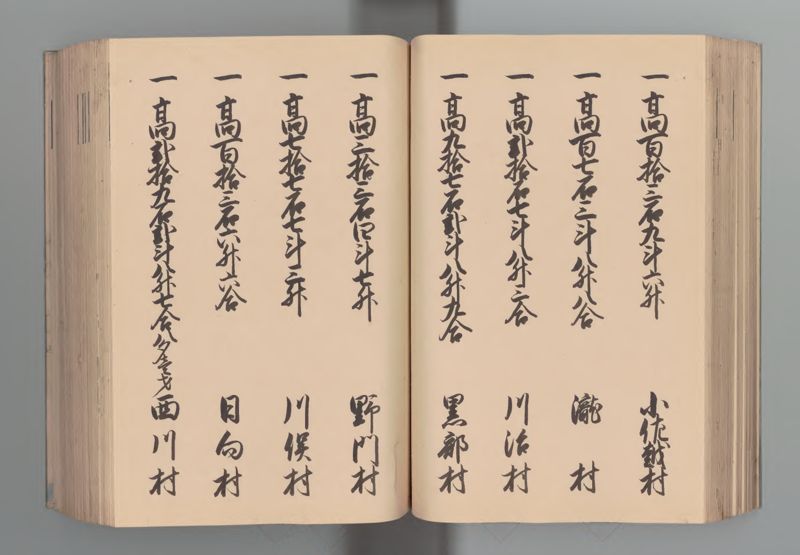 一 高百拾三石九斗六升 小佐越村
一 高百七石三斗八升八合 瀧村
一 高弐拾石七斗八升三合 川治村
一 高九拾七石弐斗八升九合 黒部村
一 高三拾三石四斗七升 野門村
一 高七拾七石七斗三升 川俣村
一 高百拾三石六升六合 日向村
一 高弐拾九石弐斗八升七合八夕壱才 西川村